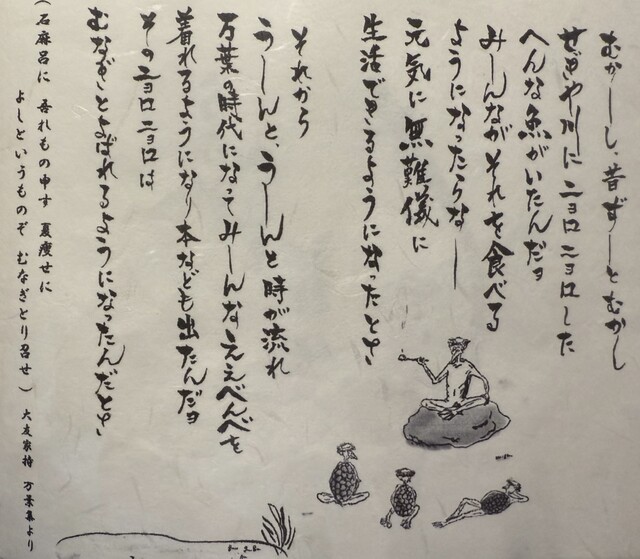 むかーしし、昔ずーとむかし
せぎや川にニョロニョロした
へんな魚がいたんだョ
みーんながそれを食べる
ようになったらなー
元気に無難儀に
生活できるようになったとさ
それから
うーんと、うーんと時が流れ
万葉の時代になってみーんなええべんべを
着れるようになり本なども出たんだョ
そのニョロニョロは
むなぎとよばれるようになったんだとさ
(石麻呂に 吾れもの申す 夏痩せに
よしというものぞ むなぎとり召せ) 大友家持 万葉集より